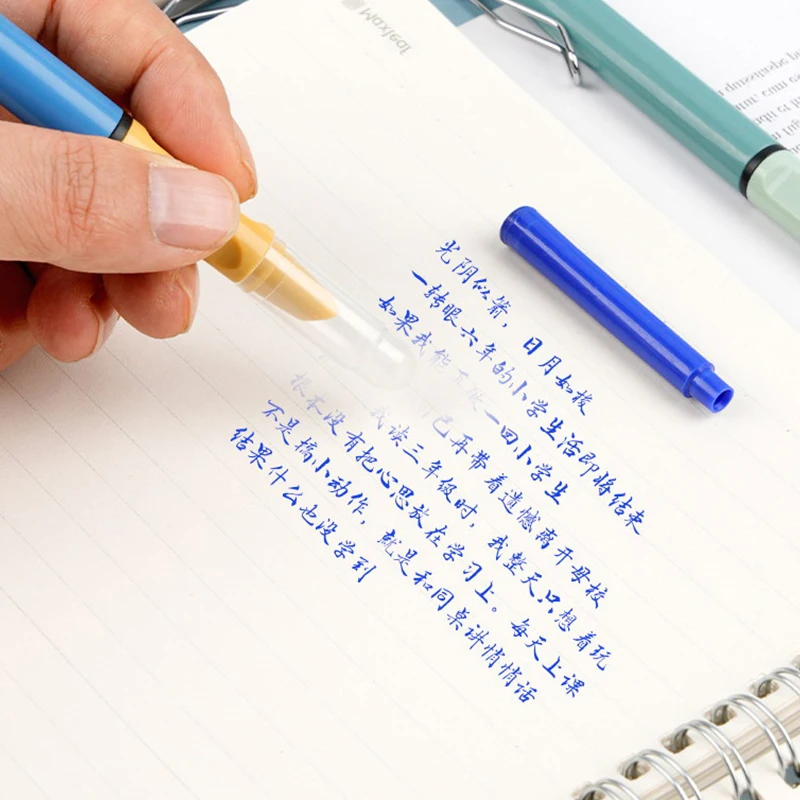 Maxleaf
光阴似箭，日月如梭
一转眼六年的小学生活即将结束
如果我能一回小学生
己再带着遗憾离开母校
我读三年级时，我整天只想着玩
根本没有把心思放在学习上。每天上课
不是搞小动作，就是和同桌讲悄悄话
结果什么也没学到